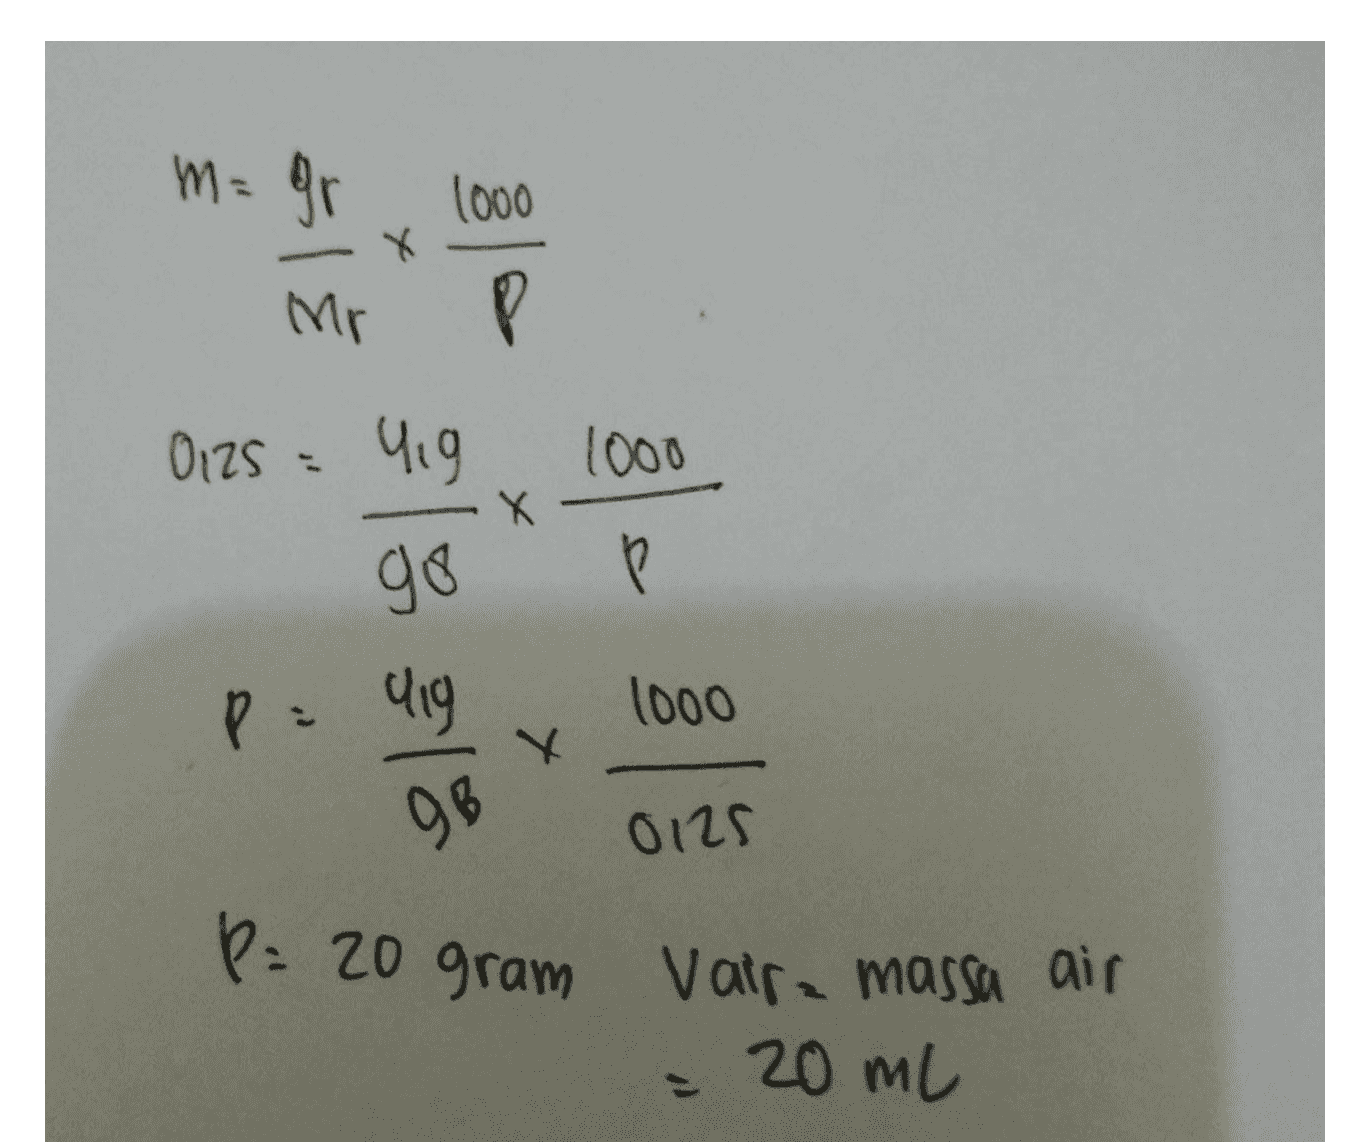 m = gr/Mr x 1000/P
0,25 = 4,9/98 x 1000/P
P = 4,9/98 x 1000/0,25
P = 20 gram Vair = massa air
= 20 mL